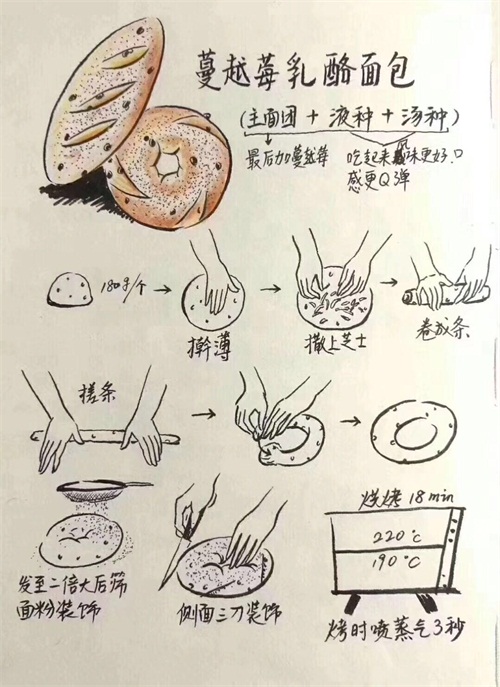 蔓越莓乳酪面包
(主面团 + 液种 + 汤种)
最后加蔓越莓
吃起来味更好.口
感更Q弹
180g/个
擀薄
撒上芝士
卷成条
搓条
烘烤 18min
220℃
190℃
发至二倍大后筛
面粉装饰
侧面三刀装饰
烤时喷蒸气3秒